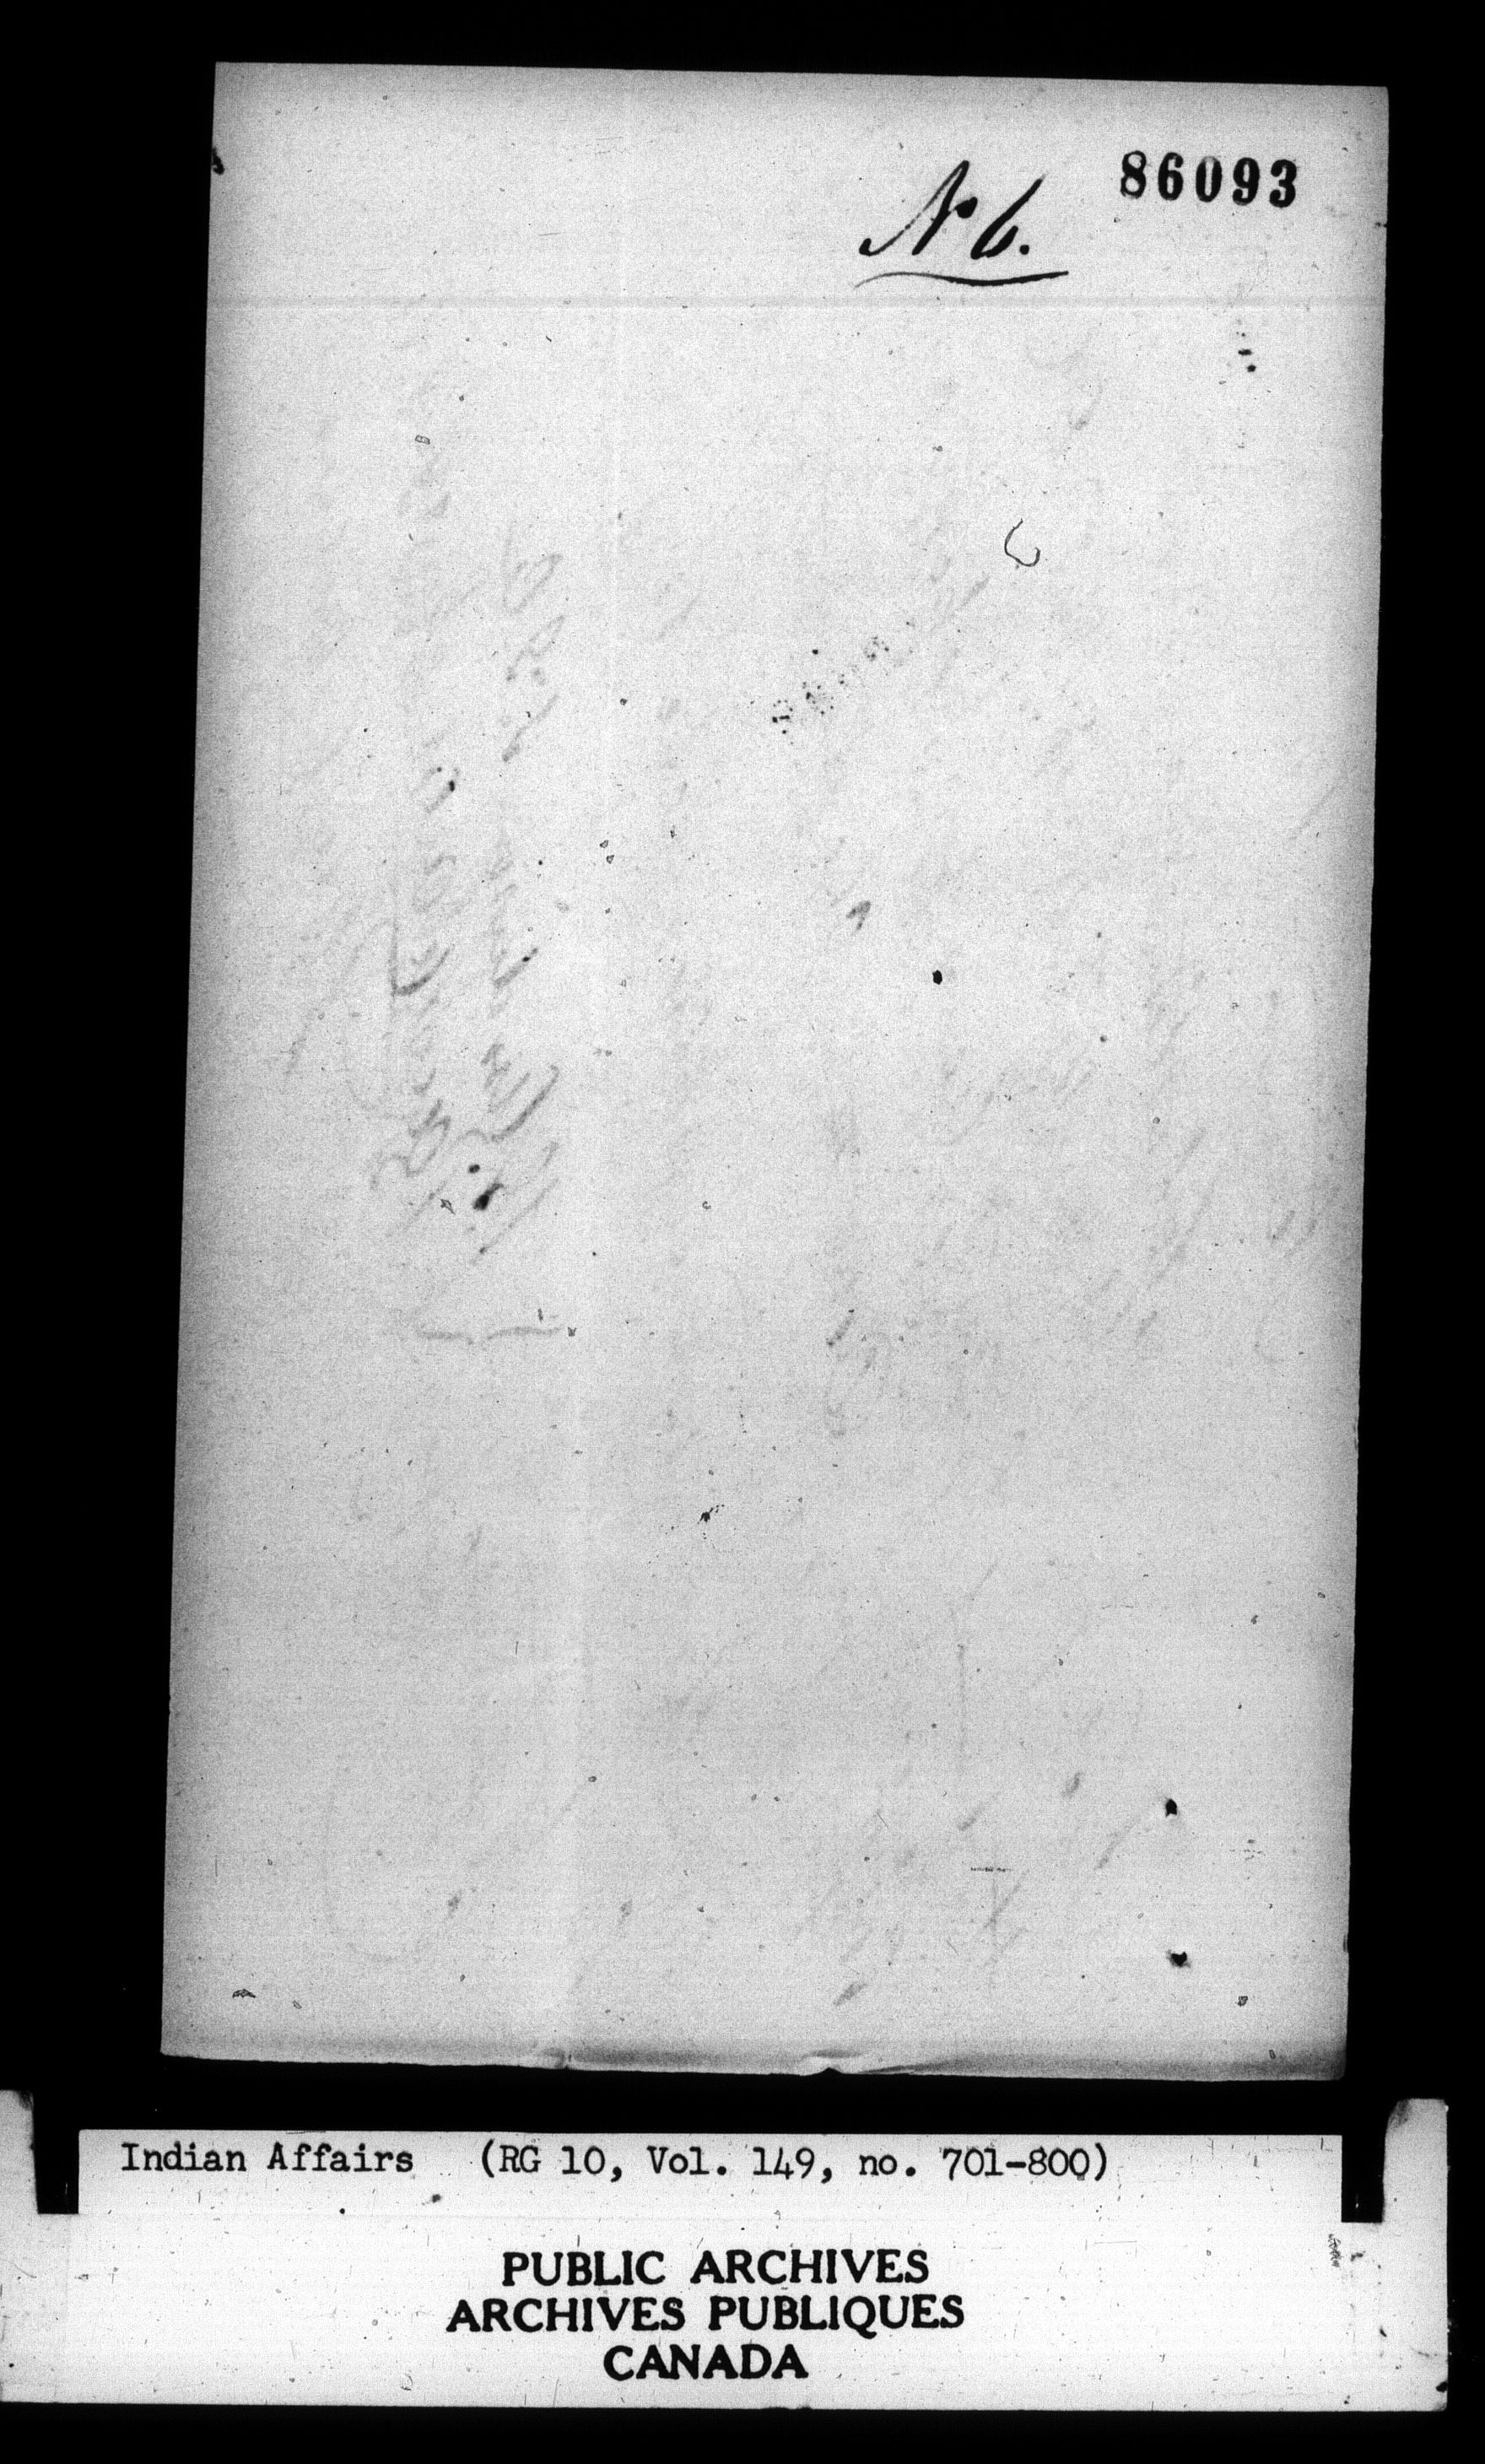 86093
No 6.
Indian Affairs (RG 10, Vol. 149, no. 701-800)
PUBLIC ARCHIVES
ARCHIVES PUBLIQUES
CANADA